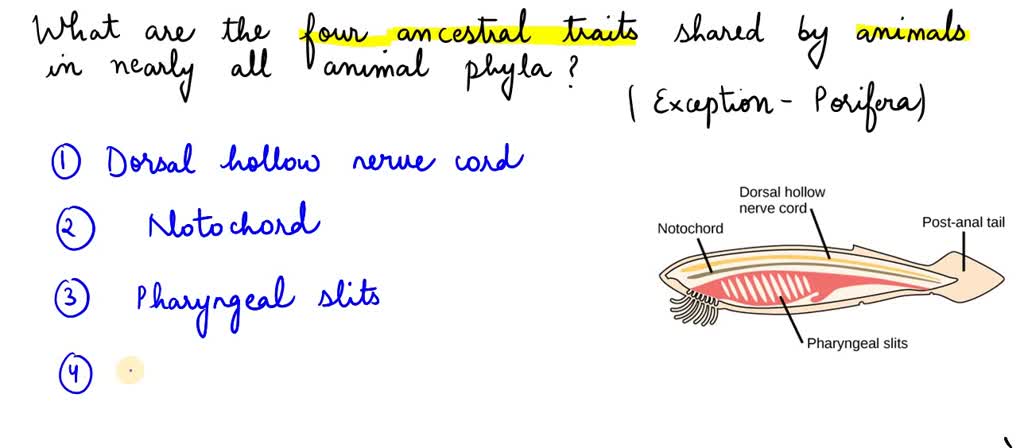 What are the four ancestral traits shared by animals
in nearly all animal phyla?
(Exception - Porifera)
① Dorsal hollow nerve cord
② Notochord
③ Pharyngeal slits
④
Dorsal hollow
nerve cord
Notochord
Post-anal tail
Pharyngeal slits